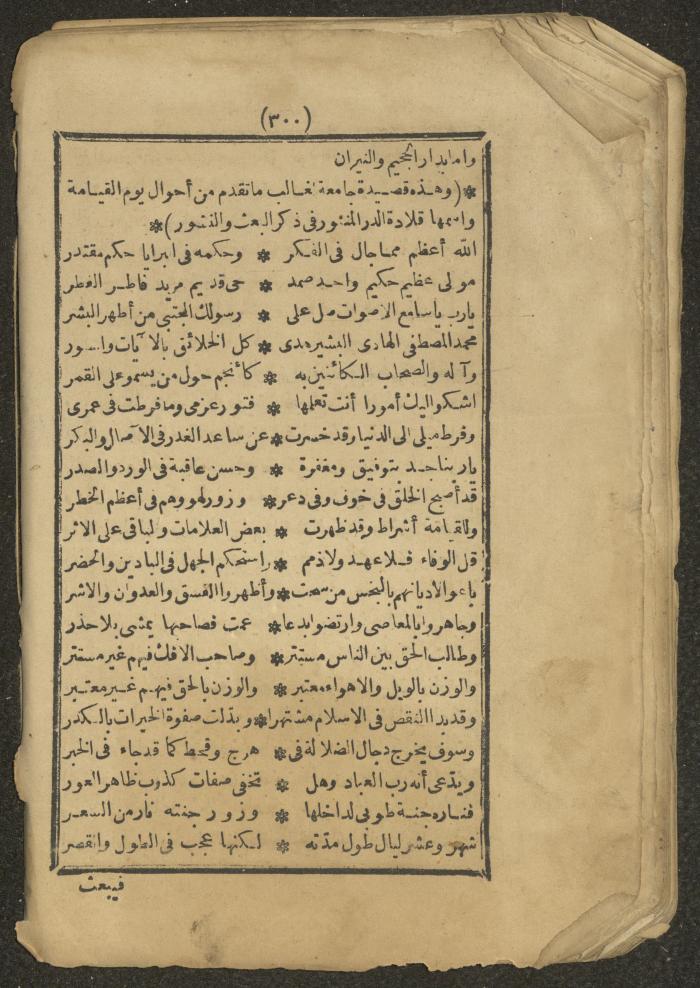 (٣٠٠)
وامابدار الجحيم والنيران
*(وهذه قصيدة جامعة لغالب ما تقدم من أحوال يوم القيامة
واسمها قلادة الدر المنثور فى ذكر البعث والنشور)*
الله أعظم مما جال فى الفكر * وحكمه فى البرايا حكم مقتدر
مولى عظيم حكيم واحد صمد * حى قديم مريد فاطر الفطر
يارب ياسامع الاصوات صل على * رسولك المجتبى من أطهر البشر
محمد المصطفى الهادى البشير هدى * كل الخلائق بالآيات والسور
وآله والصحاب الكائنين به * كأنجم حول من يسمو على القمر
اشكو اليك أمورا أنت تعلمها * فتور عزمى وما فرطت فى عمرى
وفرط ميلى الى الدنيا وقد حسرت * عن ساعد الغدر فى الآصال والبكر
ياربنا جد بتوفيق ومغفرة * وحسن عاقبة فى الورد والصدر
قد أصبح الخلق فى خوف وفى ذعر * وزور لهو وهم فى أعظم الخطر
وللقيامة أشراط وقد ظهرت * بعض العلامات والباقى على الاثر
قل الوفاء فلا عهد ولا ذمم * واستحكم الجهل فى البادين والحضر
باعوا لاديانهم بالبخس من سحت * وأظهروا الفسق والعدوان والاشر
وجاهروا بالمعاصى وارتضوا بدعا * عمت فصاحبها يمشى بلا حذر
وطالب الحق بين الناس مستتر * وصاحب الافك فيهم غير مستتر
والوزن بالويل والاهواء معتبر * والوزن بالحق فيهم غير معتبر
وقد بدا النقص فى الاسلام مشتهرا * وبدلت صفوة الخيرات بالكدر
وسوف يخرج دجال الضلالة فى * هرج وقحط كما قد جاء فى الخبر
ويدعى أنه رب العباد وهل * تخفى صفات كذوب ظاهر العور
فناره جنة طوبى لداخلها * وزور جنته نار من السعر
شهر وعشر ليال طول مدته * لكنها عجب فى الطول والقصر
فيبعث